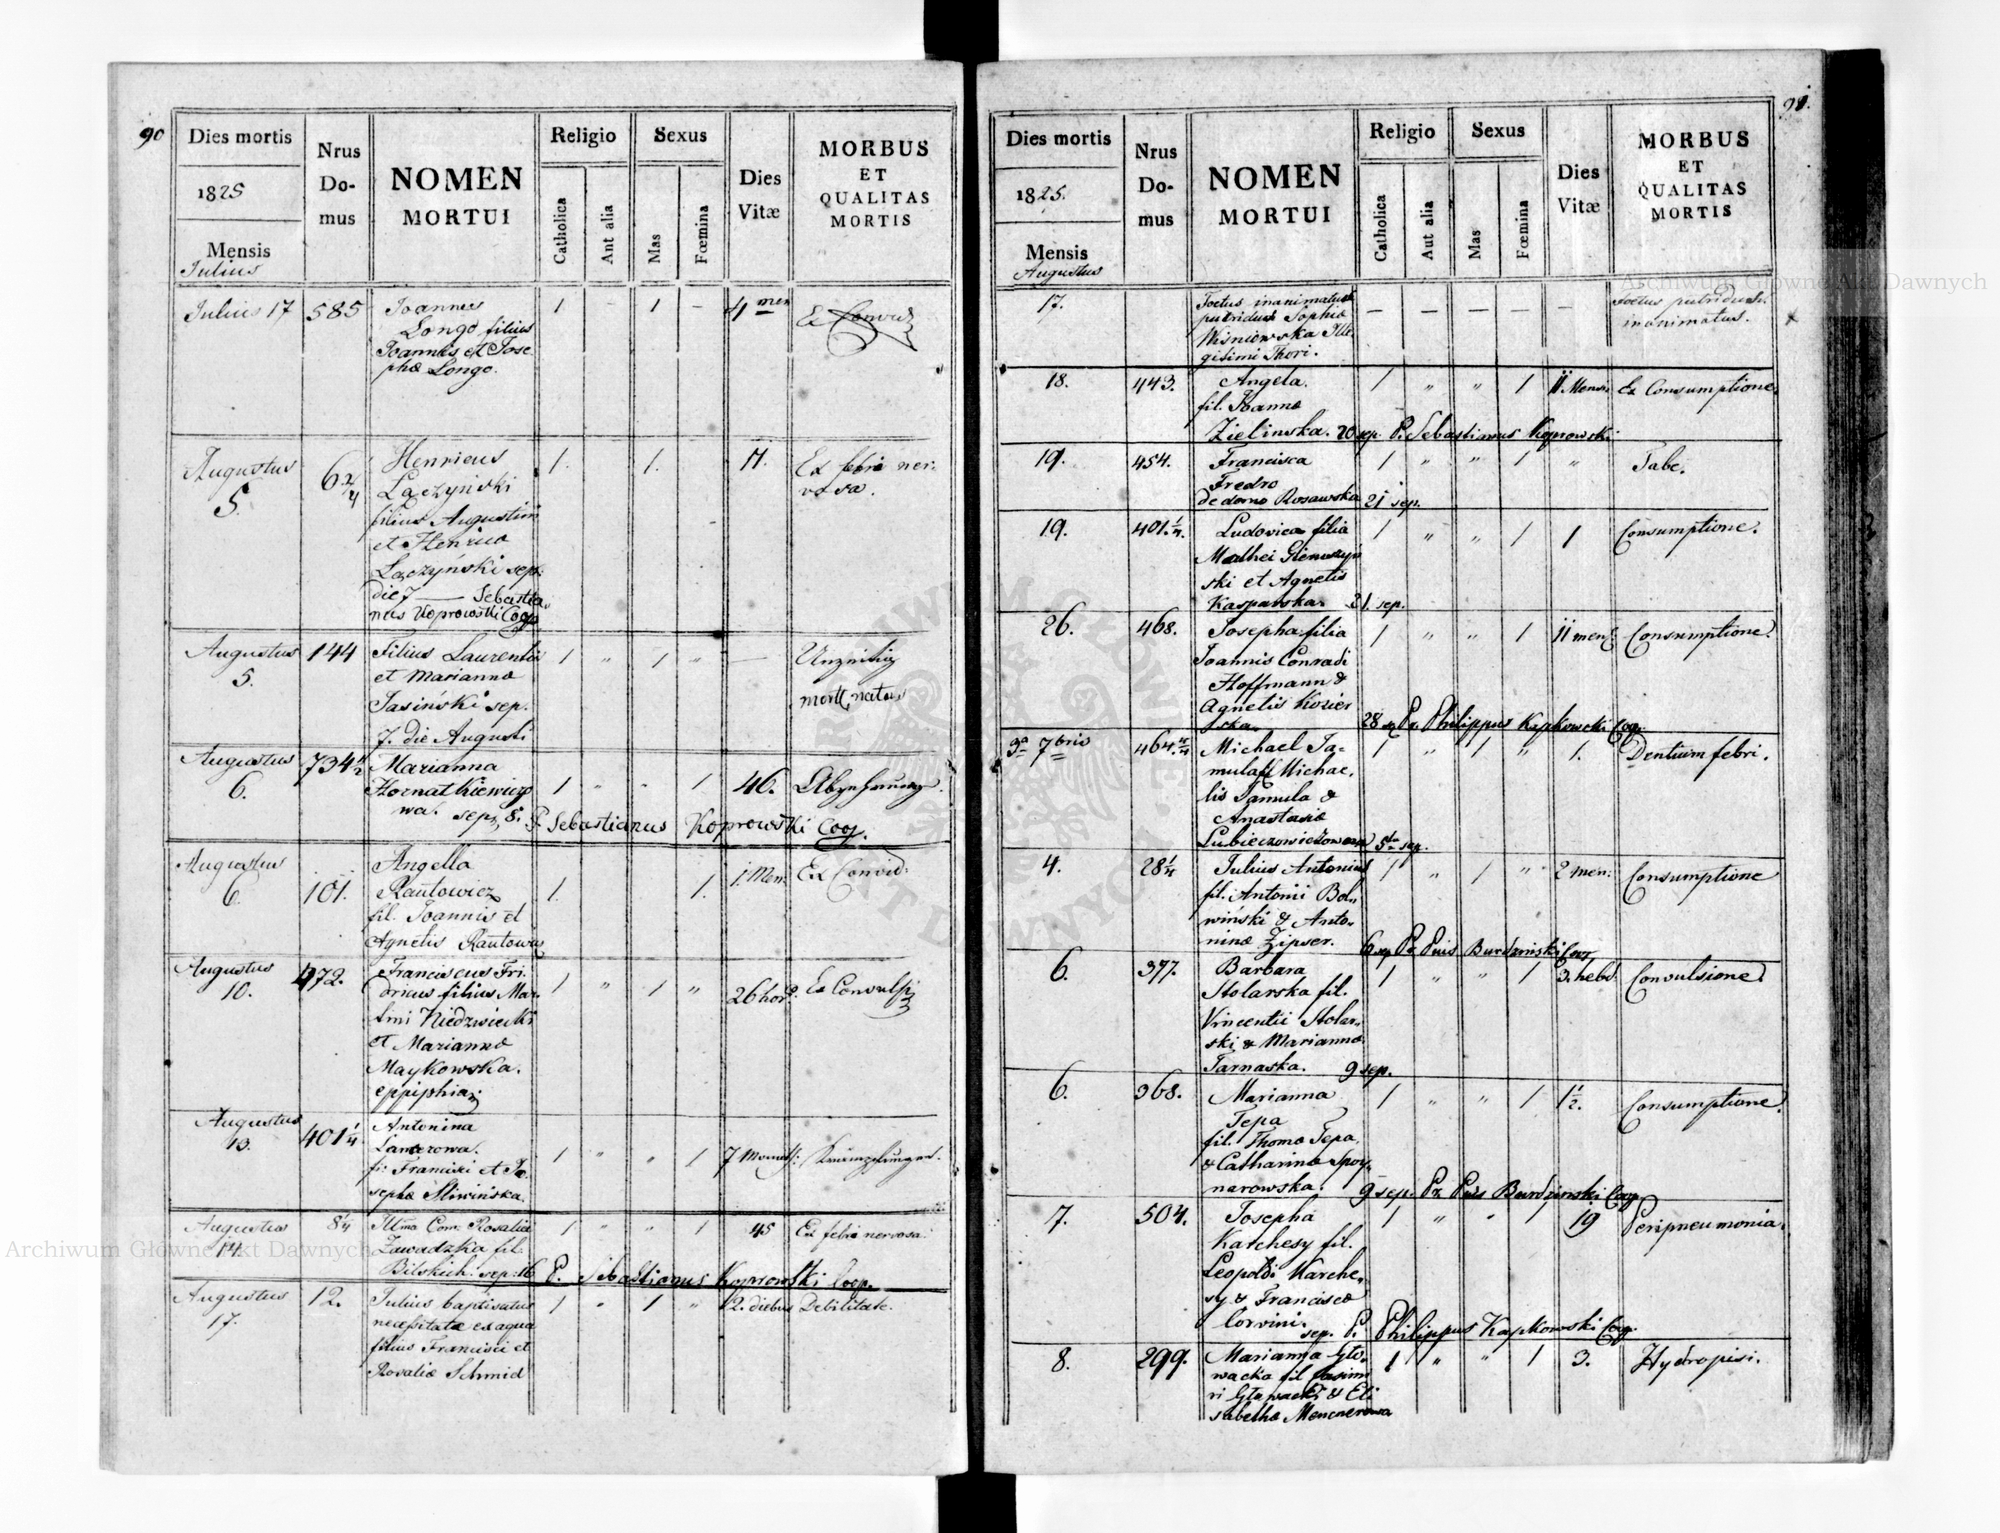 90
Dies mortis
1825
Mensis
Julius
Nrus
Do-
mus
NOMEN
MORTUI
Religio
Catholica
Aut alia
Sexus
Mas
Fœmina
Dies
Vitæ
MORBUS
ET
QUALITAS
MORTIS
Julius 17 585 Joannes 1 – 1 – 4 men Ex Convul
Longo filius
Joannis et Jose
phæ Longo.
Augustus 5. 6 2/4 Henricus 1. 1. 17. Ex febri ner-
vosa.
Łączyński
filius Augustini
et Henrica
Łączyński sep:
die 7 — Sebastia
nus Koprowski Coop
Augustus 5. 144 Filius Laurentii 1 „ 1 „ — Unzeitig
mort. natus
et Mariannæ
Jasiński sep.
7. die Augusti
Augustus 6. 734 1/2 Marianna
Hornatkiewiczo 1 „ „ 1 46.
wa. sep. 8. P. Sebastianus Koprowski Coop.
Augustus 6. 101. Angella
Rautowicz 1. 1. 1. Men: Ex Convul:
fil. Joannis et
Agnetis Rautowicz
Augustus 10. 472. Franciscus Fri-
dricus filius Max- 1 „ 1 „ 26 hor. Ex Convulsi
imi Niedzwiecki
et Mariannæ
Maykowska.
Augustus 13. 401 1/4 Antonina
1 „ „ 1 7
fi: Francisci et Jo
sephæ Sliwińska.
Augustus 14. 8 1/4 Com: Rosalia 1 „ „ 1 45 Ex febri nervosa.
Zawadzka fil.
Bilskich. sep: 16 P. Sebastianus Koprowski Coop.
Augustus 17. 12. Julius baptisatus 1 „ 1 „ 2. diebus Debilitate.
necessitate ex aqua
filius Francisci et
Rosaliæ Schmid
91.
Dies mortis
1825.
Mensis
Augustus
Nrus
Do-
mus
NOMEN
MORTUI
Religio
Catholica
Aut alia
Sexus
Mas
Fœmina
Dies
Vitæ
MORBUS
ET
QUALITAS
MORTIS
17. Foetus inanimatus — — — — — foetus putridus
inanimatus.
putridus Sophiæ
Wisniowska Ille-
gitimi Thori.
18. 443. Angela. 1 „ „ 1 11 Mens. Ex Consumptione.
fil. Joannæ
Zielinska. 20 sep. P. Sebastianus Koprowski
19. 454. Francisca 1 „ „ 1 „ Tabe.
Fredro
de domo Rosawska 21 sep.
19. 401 1/4. Ludovica filia 1 „ „ 1 1 Consumptione.
Mathei
ski et Agnetis
Kasparska. 21. sep.
26. 468. Josepha filia 1 „ „ 1 11 mens. Consumptione.
Joannis Conradi
Hoffmann &
Agnetis Kozier
ska. 28 sep. Pr. Philippus Kapkowski Coop.
3a 7bris 464. Michael Ta- 1 „ 1 „ 1. Dentium febri.
mula fil Michae-
lis Tamula &
Anastasiæ
5ta sep.
4. 28 1/4 Julius Antonius 1 „ 1 „ 2 men: Consumptione
fil. Antonii Bol-
wiński & Anto-
ninæ Zipser. 6 sep Pr Pius Burdzinski Coop
6. 377. Barbara 1 „ „ 1 3. hebd. Convulsione
Stolarska fil.
Vincentii Stolar-
ski & Mariannæ
Tarnaska. 9 sep.
6. 368. Marianna 1 „ „ 1 1 1/2. Consumptione.
Tepa
fil. Thomæ Tepa.
& Catharinæ Spoy-
narowska. 9 sep. Pr Pius Burdzinski Coop
7. 504. Josepha 1 „ „ 1 19 Peripneumonia.
Karchesy fil.
Leopoldi Karche-
sy & Franciscæ
Corvini.
sep. P. Philippus Kapkowski Coop.
8. 299. Marianna Gło- 1 „ „ 1 3. Hydropisi.
wacka fil Casimi
ri Głowacki & Eli
sabethæ Mencnerowa
Archiwum Główne Akt Dawnych
Archiwum Główne Akt Dawnych
ARCHIWUM GŁÓWNE AKT DAWNYCH